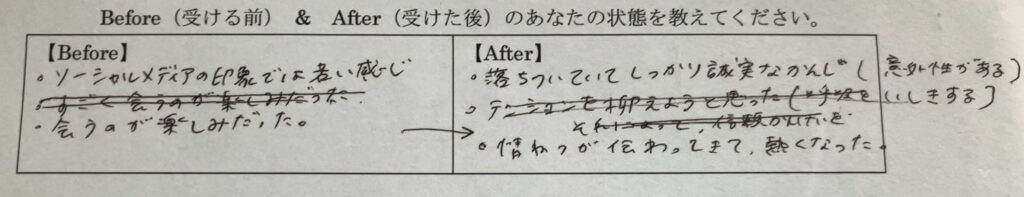 Before（受ける前） & After（受けた後）のあなたの状態を教えてください。
【Before】
。ソーシャルメディアの印象では若い感じ
すごく会うのが楽しみだった
・会うのが楽しみだった。
【After】
。落ちついていてしっかり誠実なかんじ（意外性がある）
・テンションを抑えようと思った（をいしきする）
それによって、信頼
。情ねつが伝わってきて、熱くなった。